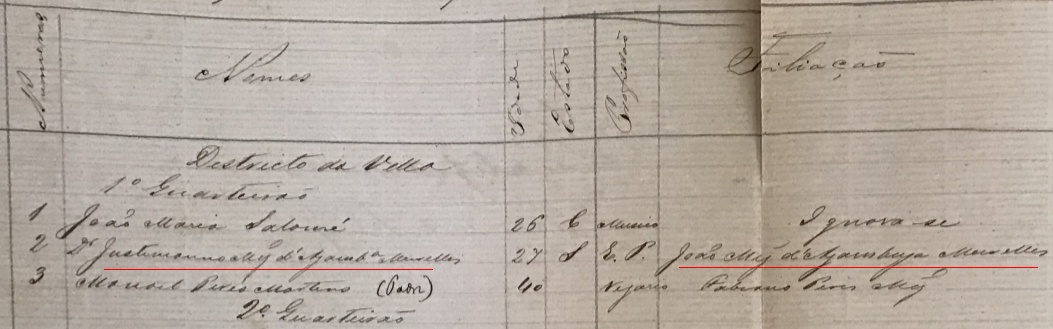 Numeros Nomes Idade Estado Profissão Filiação
Districto da Villa
1º Quarteirão
1 João Maria Salomé 26 C Musico Ignora-se
2 Dr Justinianno Mz d'Azamba Meirelles 27 S E. P. João Mz d'Azambuja Meirelles
3 Manoel Peres Martins (Padr) 40 Vigario Peres Mz
2º Quarteirão